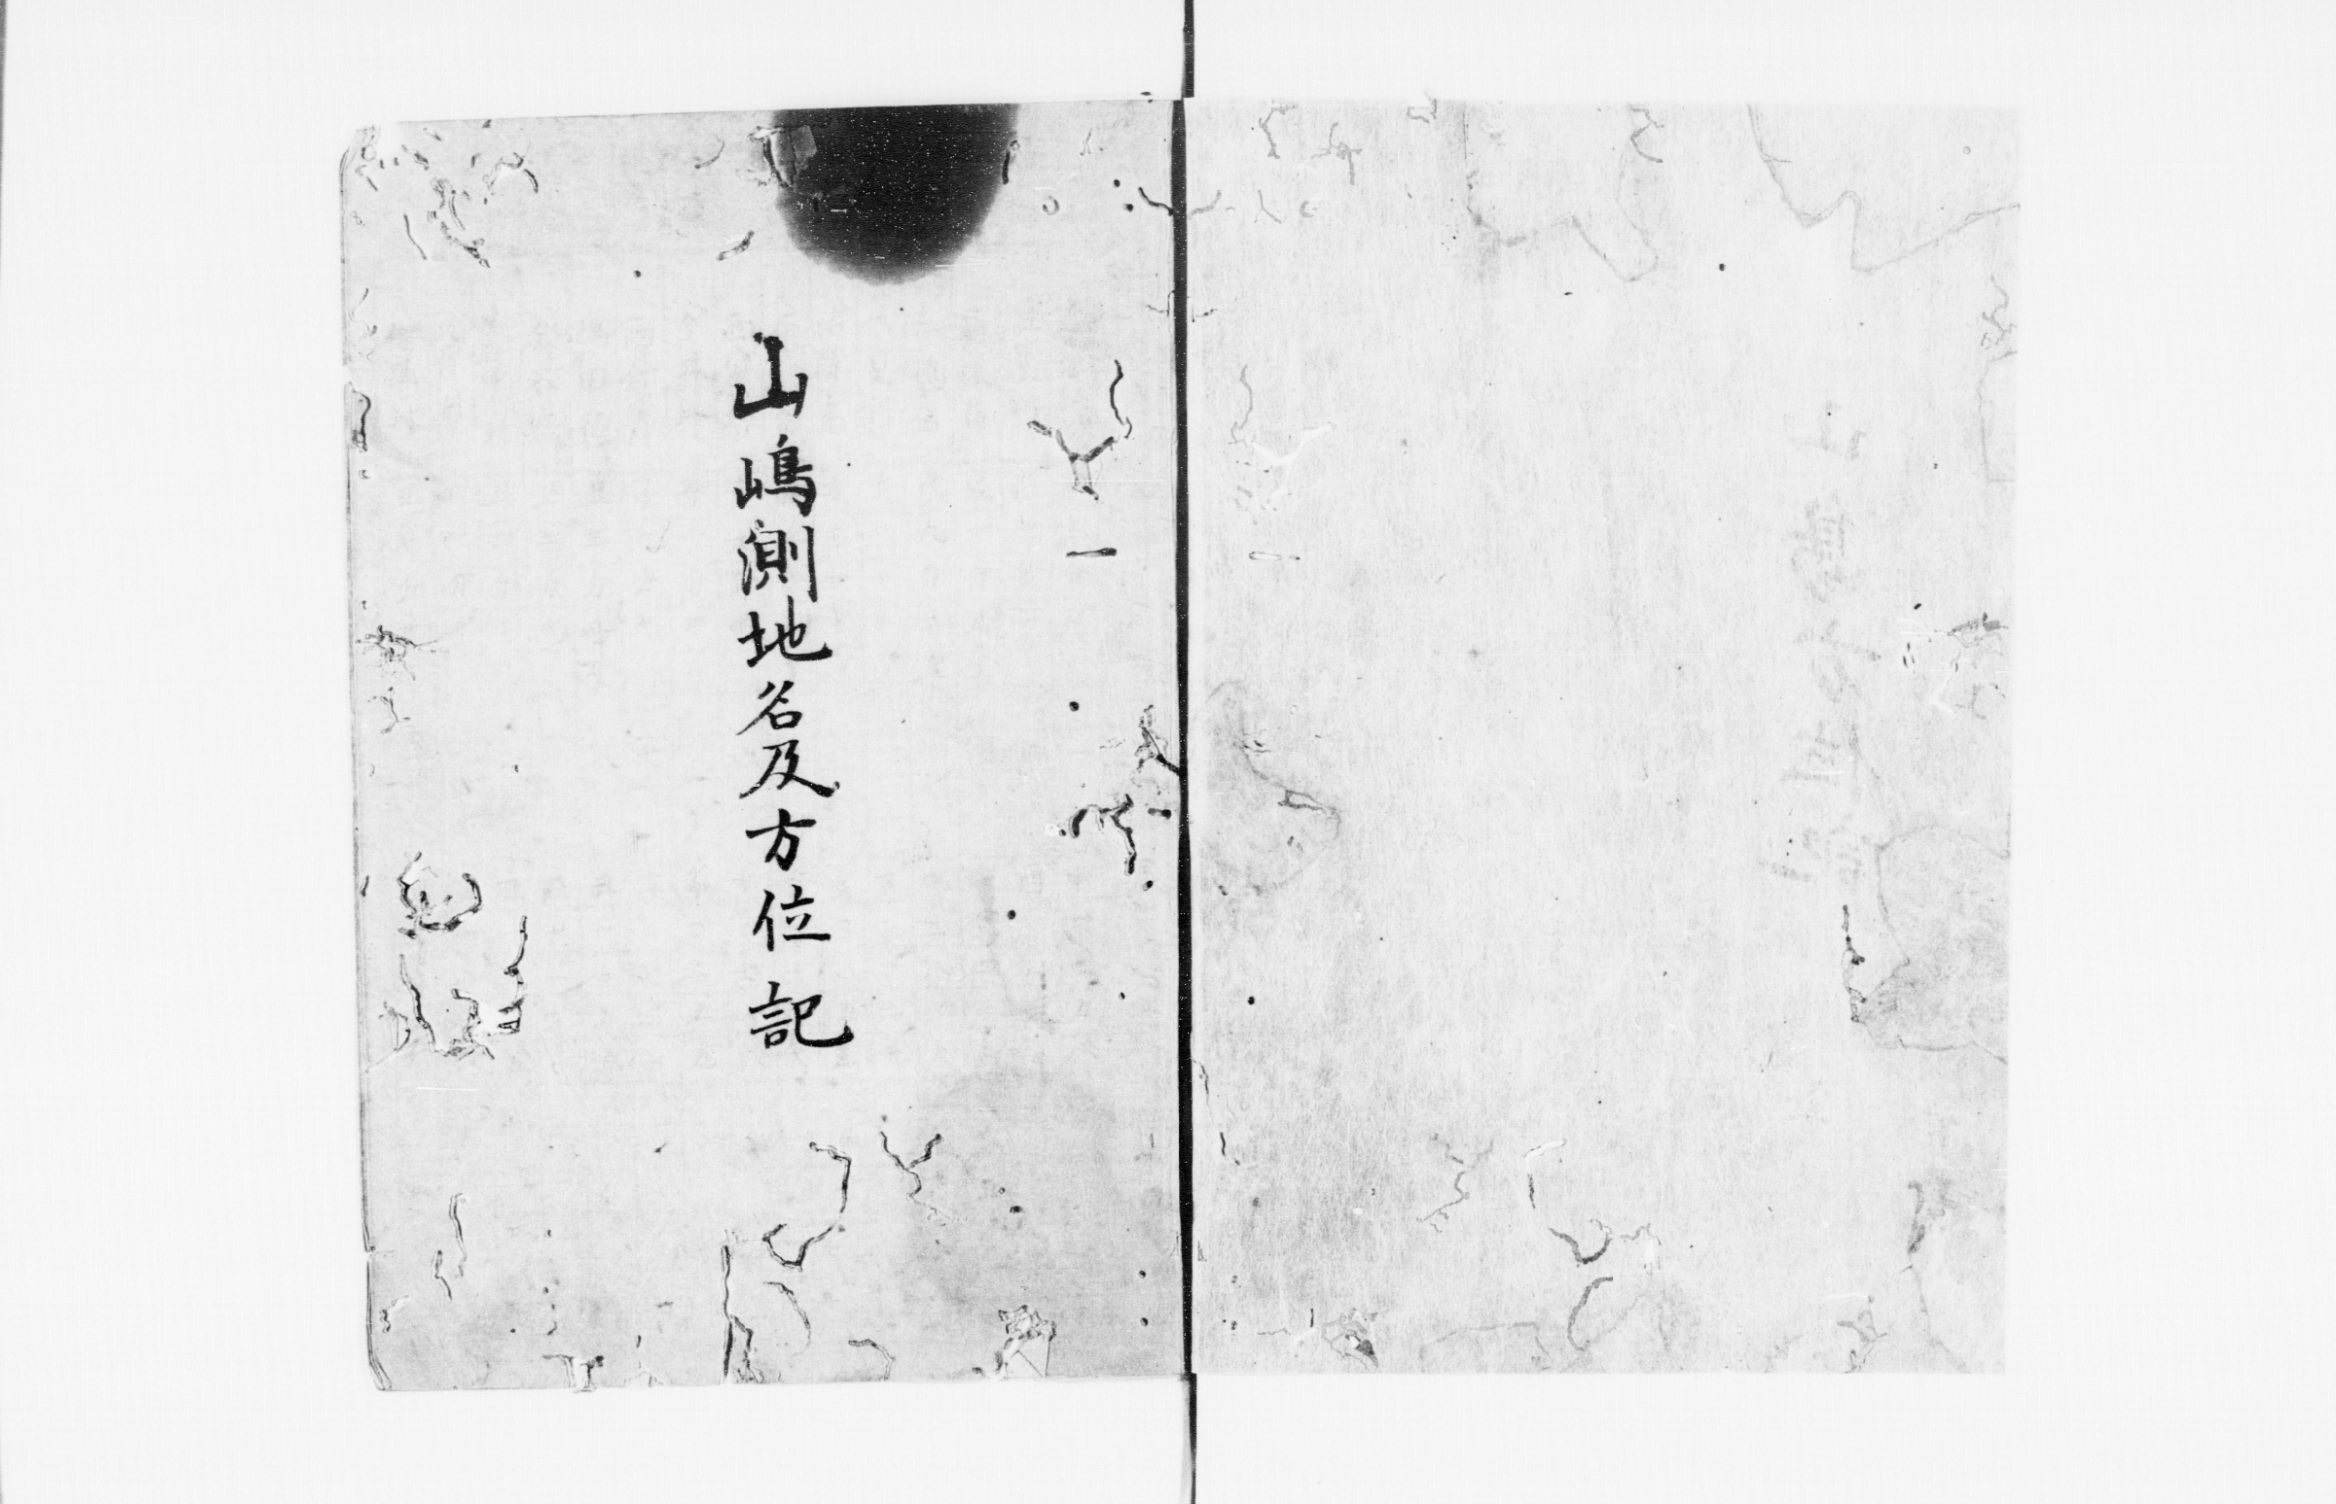 山嶋測地名及方位記